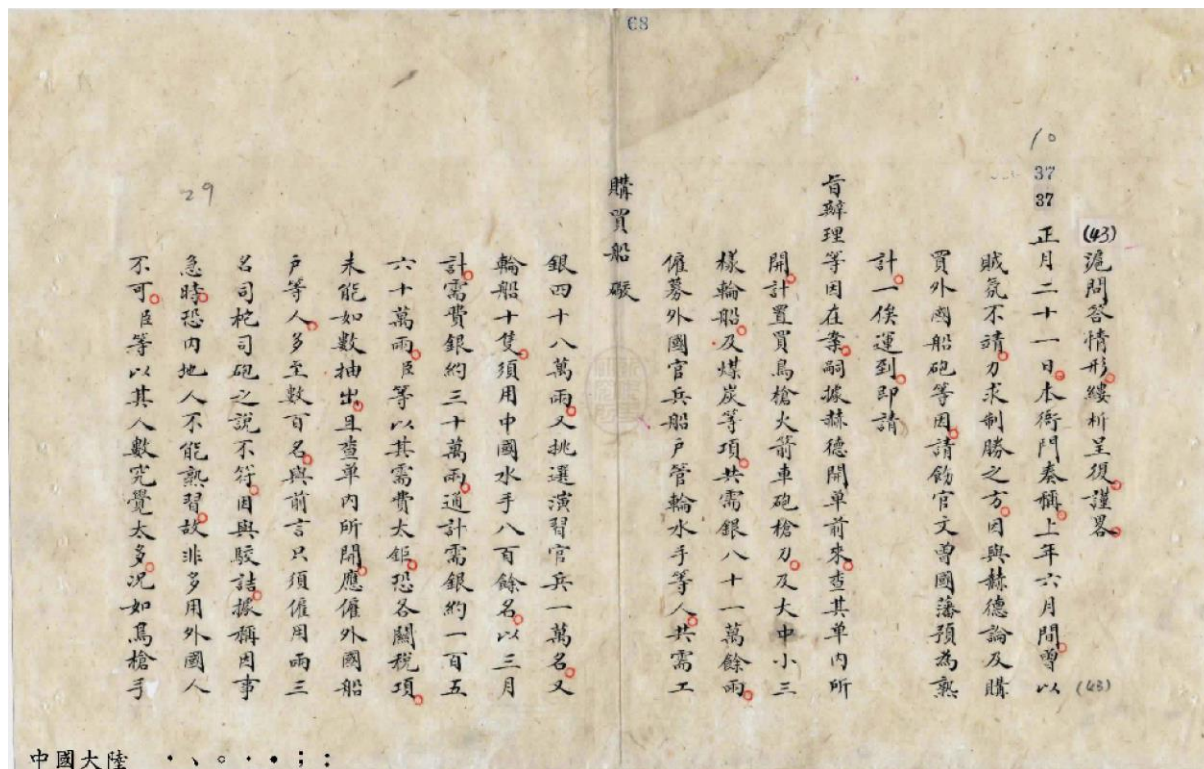 68
10
37
37
(43)滬問答情形縷析呈復謹畧
正月二十一日本衙門奏稱上年六月間曾以
(43)
賊氛不靖力求制勝之方因與赫德論及購
買外國船砲等因請飭官文曾國藩預為熟
計一俟運到即請
旨辦理等因在案嗣據赫德開單前來查其單內所
開計置買鳥槍火箭車砲槍刀及大中小三
樣輪船及煤炭等項共需銀八十一萬餘兩
僱募外國官兵船戶管輪水手等人共需工
購買船礮
銀四十八萬兩又挑選演習官兵一萬名又
輪船十隻須用中國水手八百餘名以三月
計需費銀約三十萬兩通計需銀約一百五
六十萬兩臣等以其需費太鉅恐各關稅項
未能如數抽出且查單內所開應僱外國船
戶等人多至數百名與前言只須僱用兩三
名司柁司砲之說不符因與駁詰據稱因事
急時恐內地人不能熟習故非多用外國人
不可臣等以其人數究覺太多況如鳥槍手
29
中國大陸 ・、。・•；：